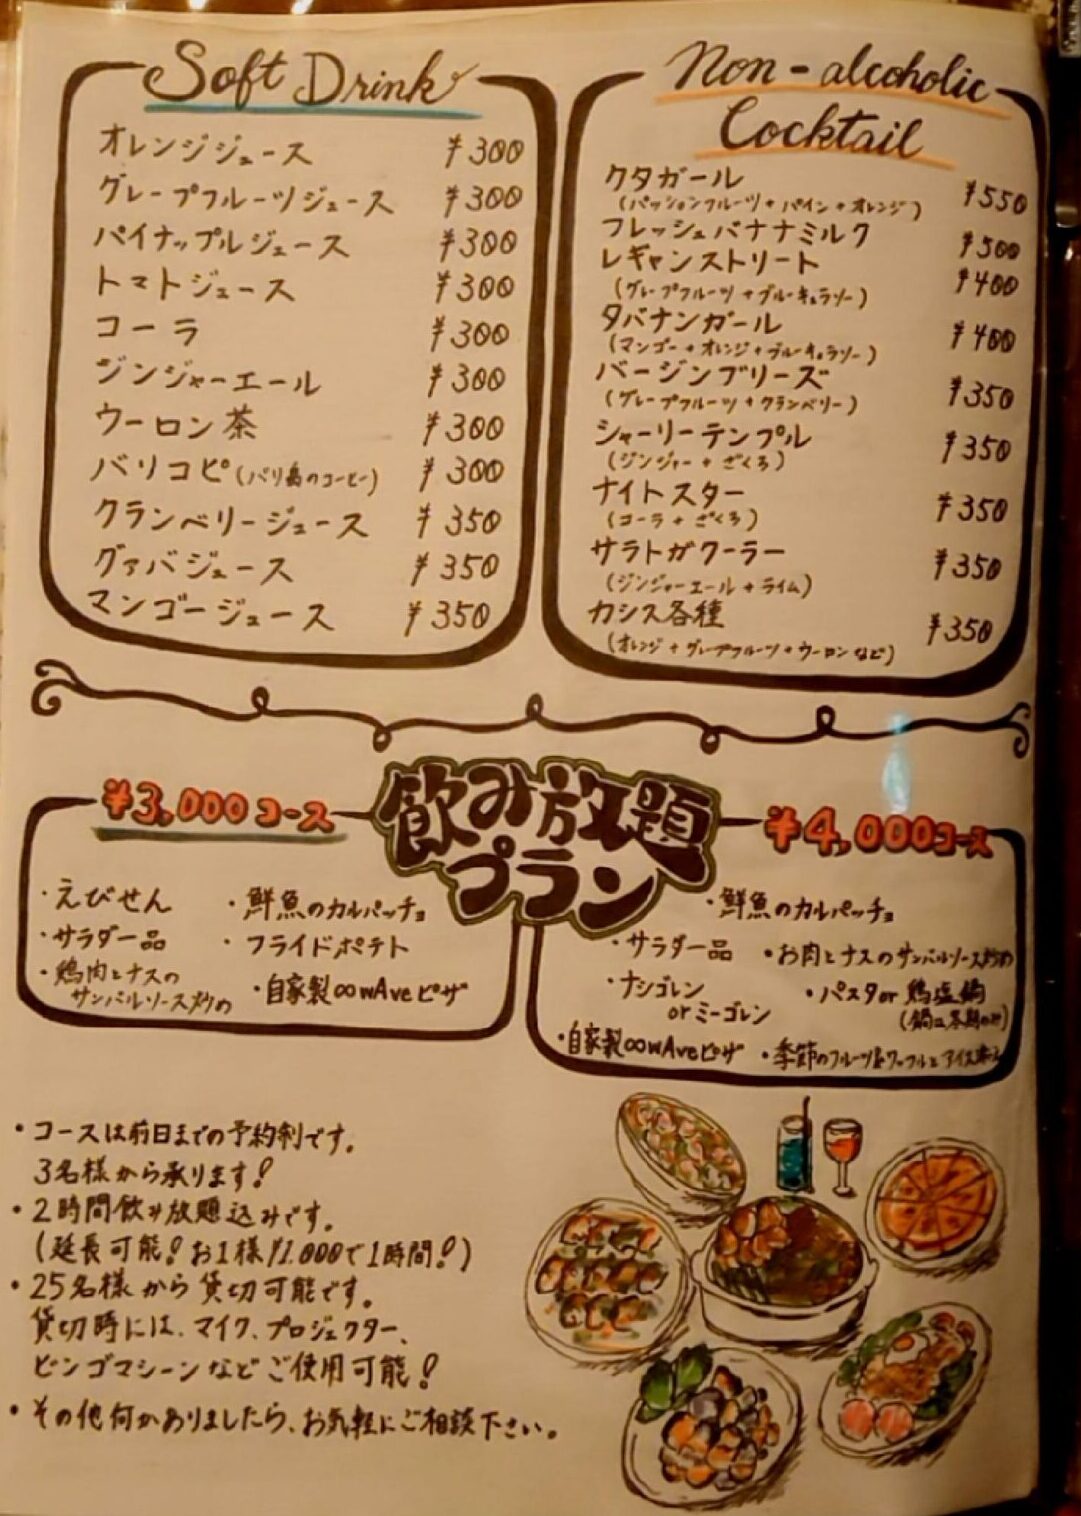 Soft Drink
オレンジジュース ¥300
グレープフルーツジュース ¥300
パイナップルジュース ¥300
トマトジュース ¥300
コーラ ¥300
ジンジャーエール ¥300
ウーロン茶 ¥300
バリコピ(バリ島のコーヒー) ¥300
クランベリージュース ¥350
グァバジュース ¥350
マンゴージュース ¥350
Non-alcoholic
Cocktail
クタガール ¥550
(パッションフルーツ+パイン+オレンジ)
フレッシュバナナミルク ¥500
レギャンストリート ¥400
(グレープフルーツ+ブルーキュラソー)
タバナンガール ¥400
(マンゴー+オレンジ+ブルーキュラソー)
バージンブリーズ ¥350
(グレープフルーツ+クランベリー)
シャーリーテンプル ¥350
(ジンジャー+ざくろ)
ナイトスター ¥350
(コーラ+ざくろ)
サラトガクーラー ¥350
(ジンジャーエール+ライム)
カシス各種 ¥350
(オレンジ+グレープフルーツ+ウーロンなど)
飲み放題
プラン
¥3,000コース
・えびせん
・サラダ一品
・鶏肉とナスの
サンバルソース炒め
・鮮魚のカルパッチョ
・フライドポテト
・自家製∞wAveピザ
¥4,000コース
・鮮魚のカルパッチョ
・サラダ一品
・お肉とナスのサンバルソース炒め
・ナシゴレン
orミーゴレン
・パスタor鶏塩鍋
(鍋は冬期のみ)
・自家製∞wAveピザ
・季節のフルーツ&ワッフルとアイス
・コースは前日までの予約制です。
3名様から承ります!
・2時間飲み放題込みです。
(延長可能!お1様¥1,000で1時間!)
・25名様から貸切可能です。
貸切時には、マイク、プロジェクター、
ビンゴマシーンなどご使用可能!
・その他何かありましたら、お気軽にご相談下さい。